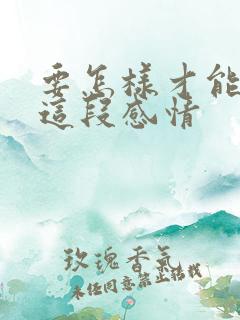 要怎樣才能
這段感情
玫瑰香氣
未經同意禁止轉載